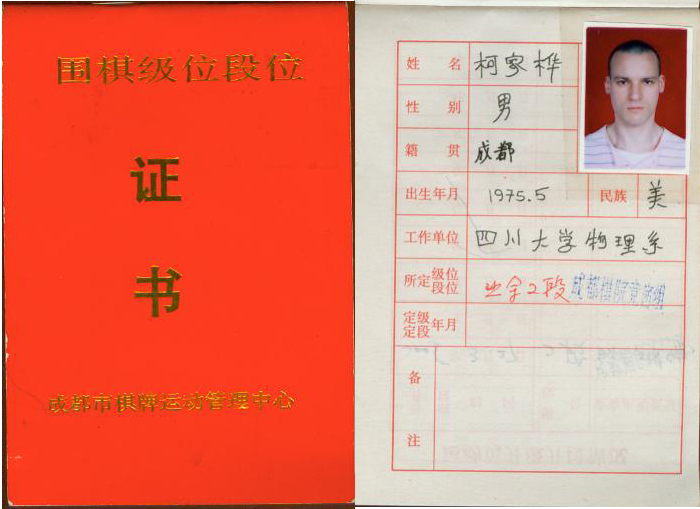 围棋级位段位
证
书
成都市棋牌运动管理中心
姓 名 柯家桦
性 别 男
籍 贯 成都
出生年月 1975.5 民族 美
工作单位 四川大学物理系
所定级位段位 业余2段 成都棋院竞赛部
定级定段年月
备
注